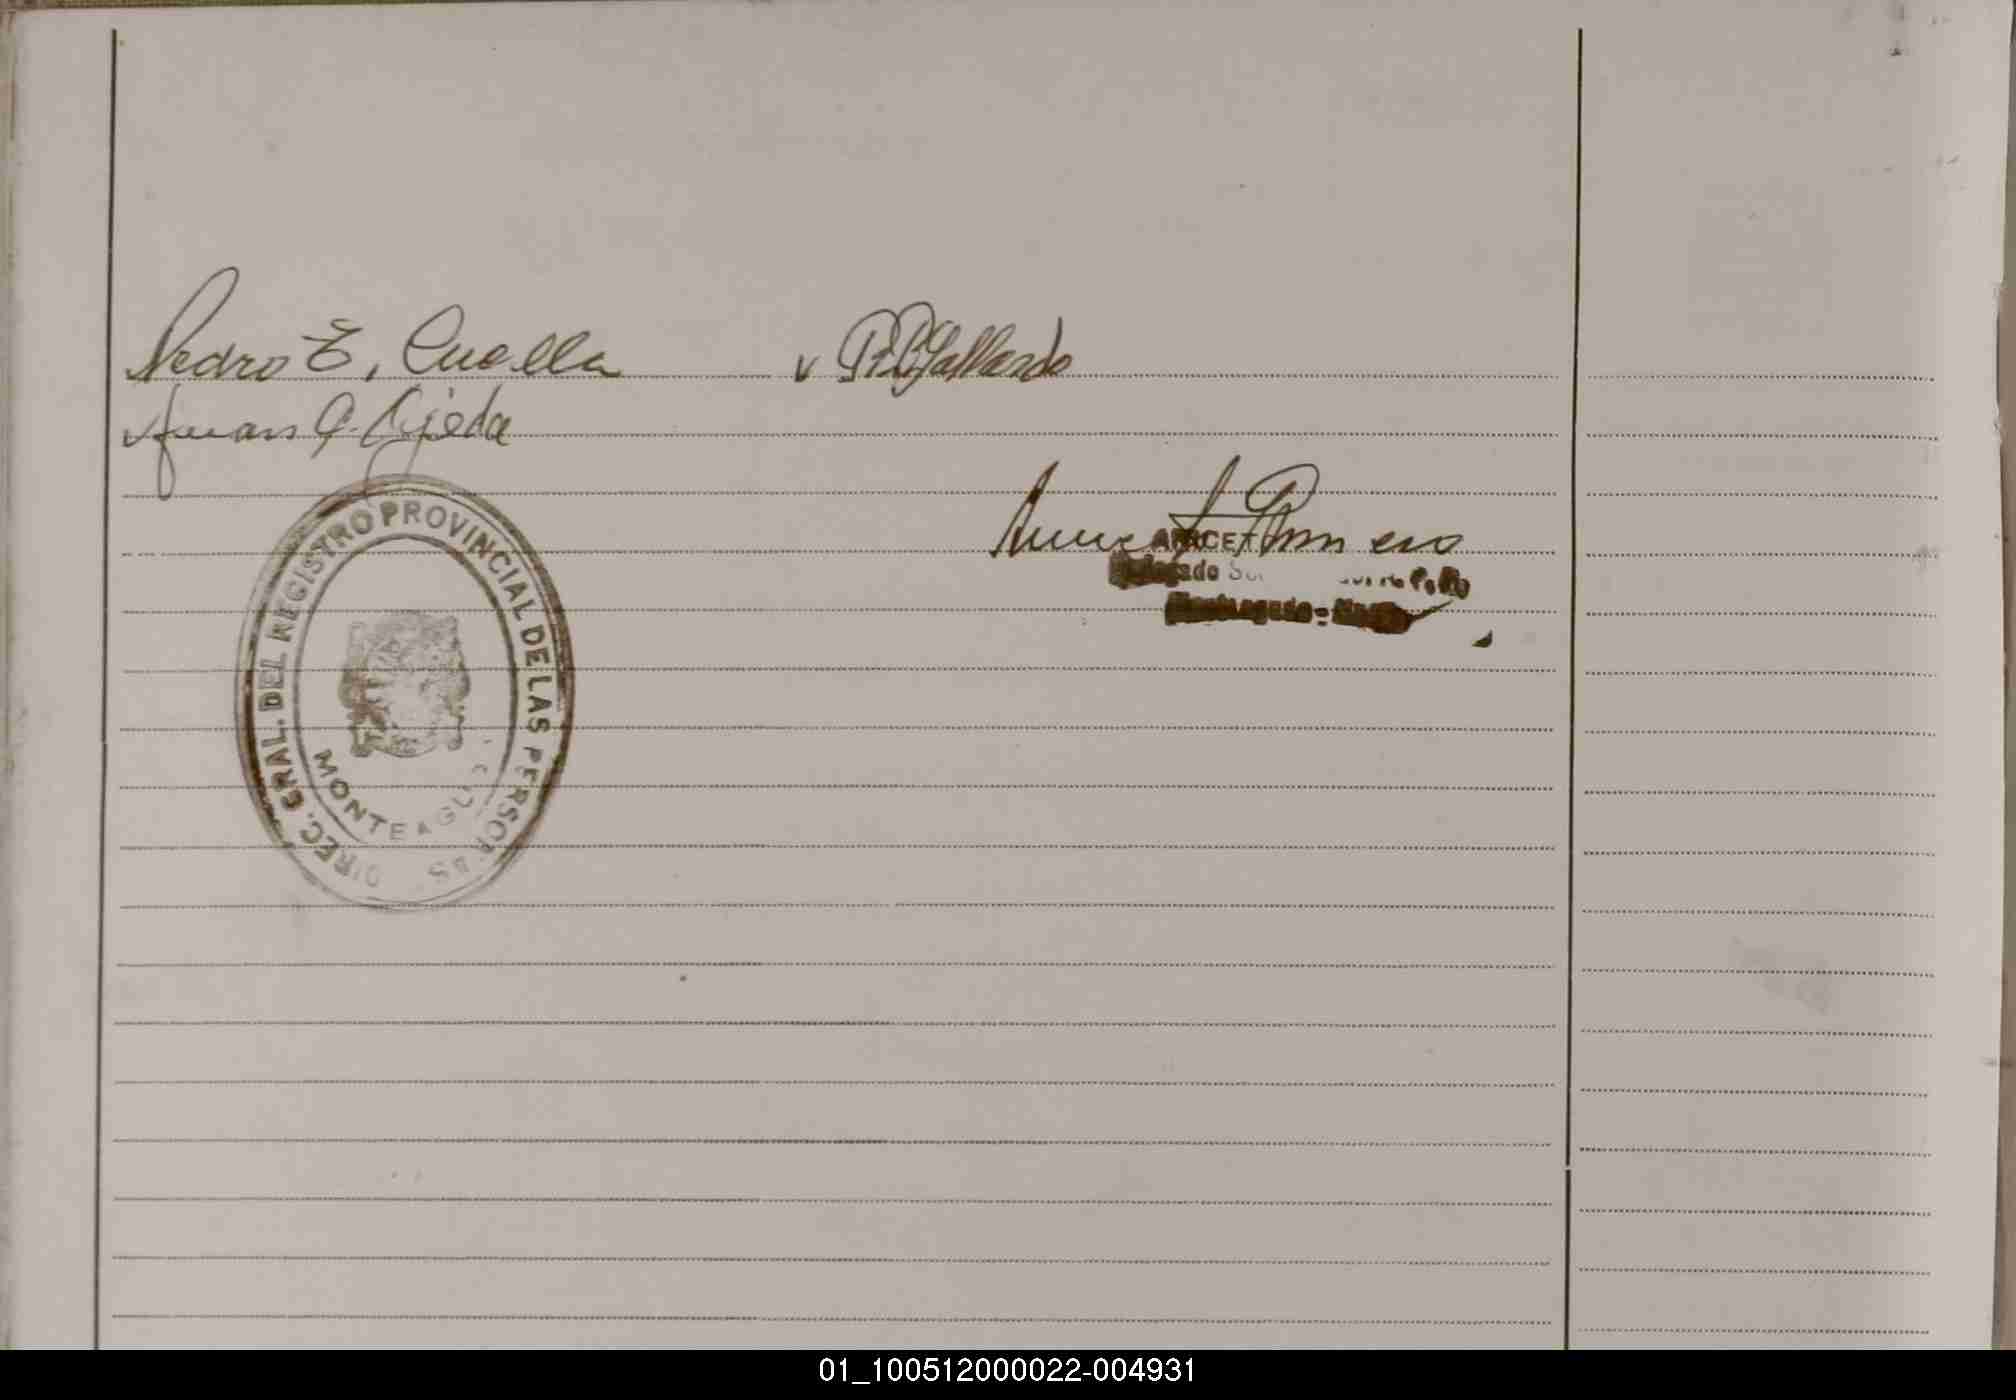 Pedro E. Cuella
v P. R. Gallardo
v Juan A. Ojeda
DIREC. GRAL. DEL REGISTRO PROVINCIAL DE LAS PERSONAS
MONTEAGUDO
Romero
Delegado
Monteagudo -
01_100512000022-004931